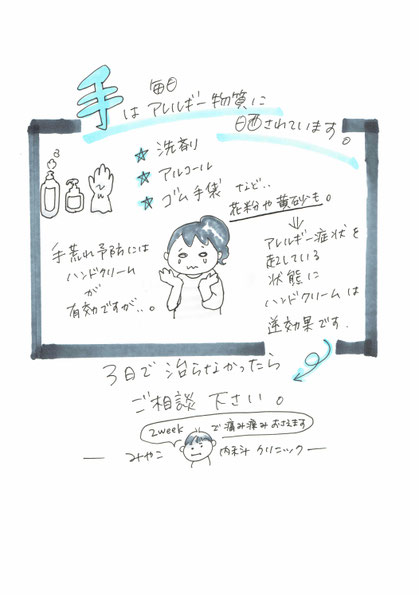 手は毎日アレルギー物質に
晒されています。
☆ 洗剤
☆ アルコール
☆ ゴム手袋 など‥
花粉や黄砂も。
手荒れ予防には
ハンドクリーム
が
有効ですが‥。
⇓
アレルギー症状を
起こしている
状態に
ハンドクリームは
逆効果です.
3日で治らなかったら
ご相談 下さい。
2weekで痛み痒みおさえます
みやこ 内科クリニック